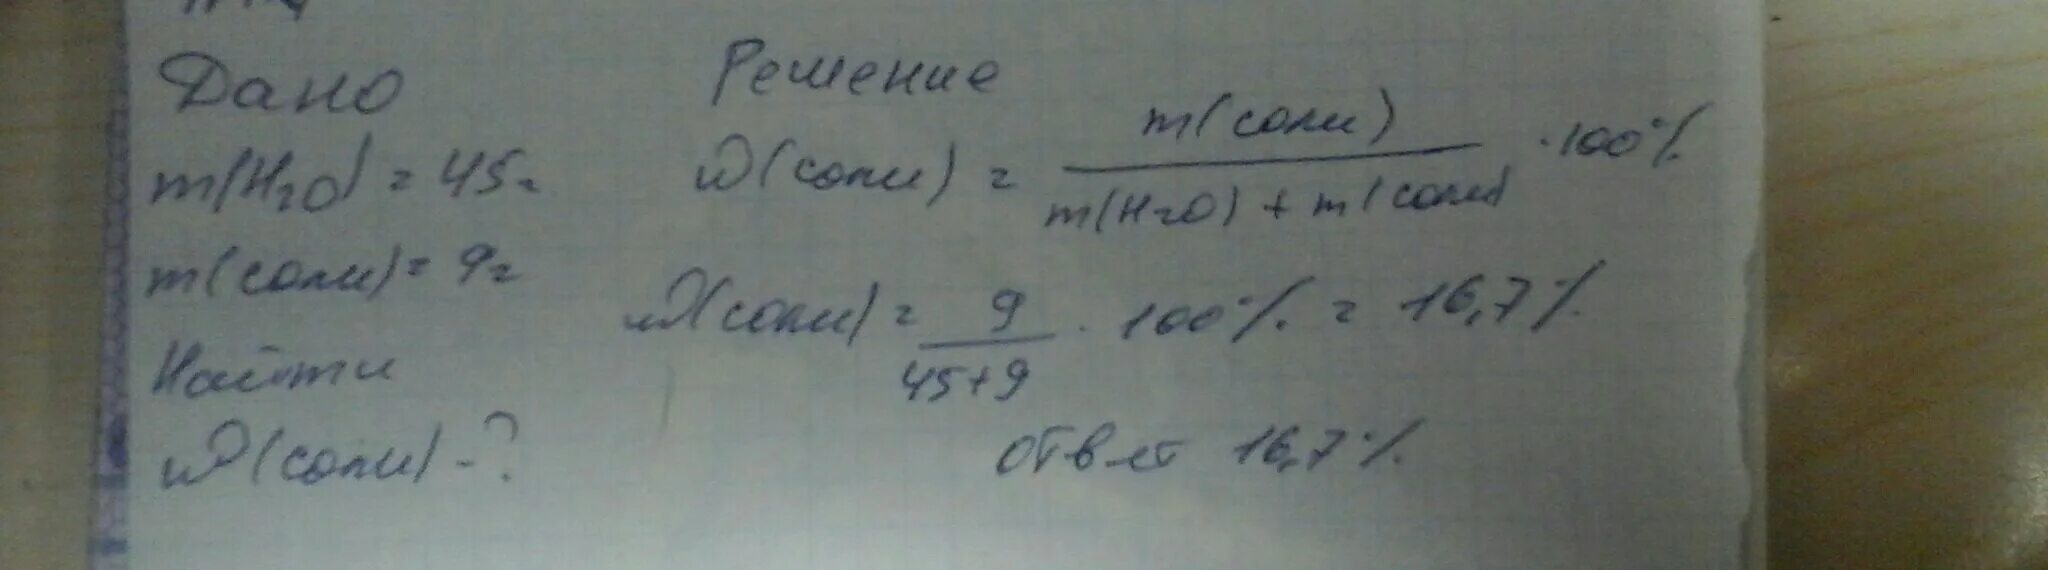 Дано
m(H2O) = 45г
m(соли) = 9г
Найти
ω(соли) - ?
Решение
ω(соли) = m(соли) / m(H2O) + m(соли) · 100%
ω(соли) = 9 / 45+9 · 100% = 16,7%
ответ 16,7%